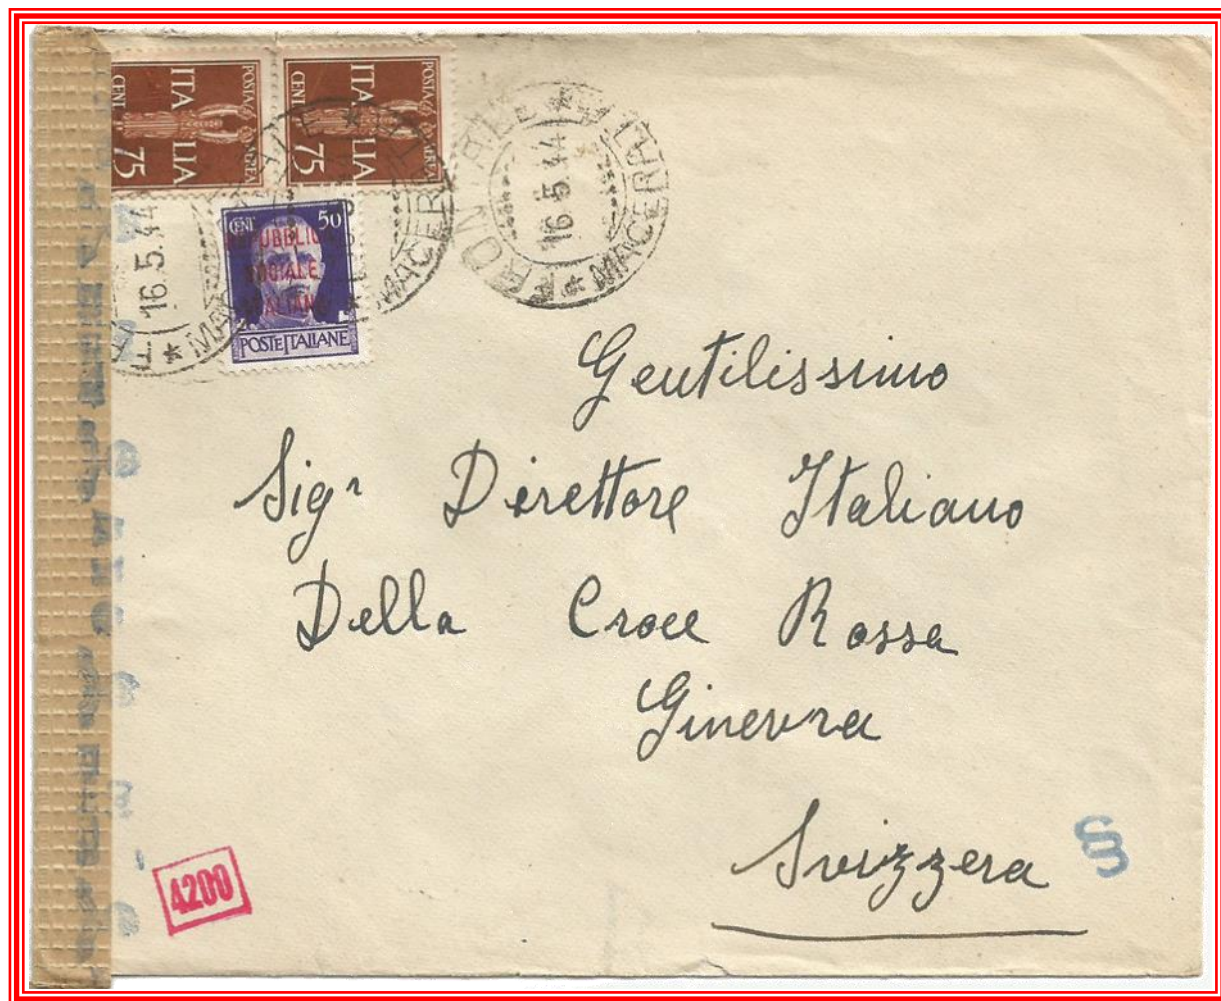 POSTA AEREA
ITALIA
CENT 75
POSTA AEREA
ITALIA
CENT 75
CENT 50
REPUBBLICA
SOCIALE
ITALIANA
POSTE ITALIANE
16.5.44
16.5.44
* MACERATA
MACERATA
Gentilissimo
Sigr Direttore Italiano
Della Croce Rossa
Ginevra
Svizzera
4200